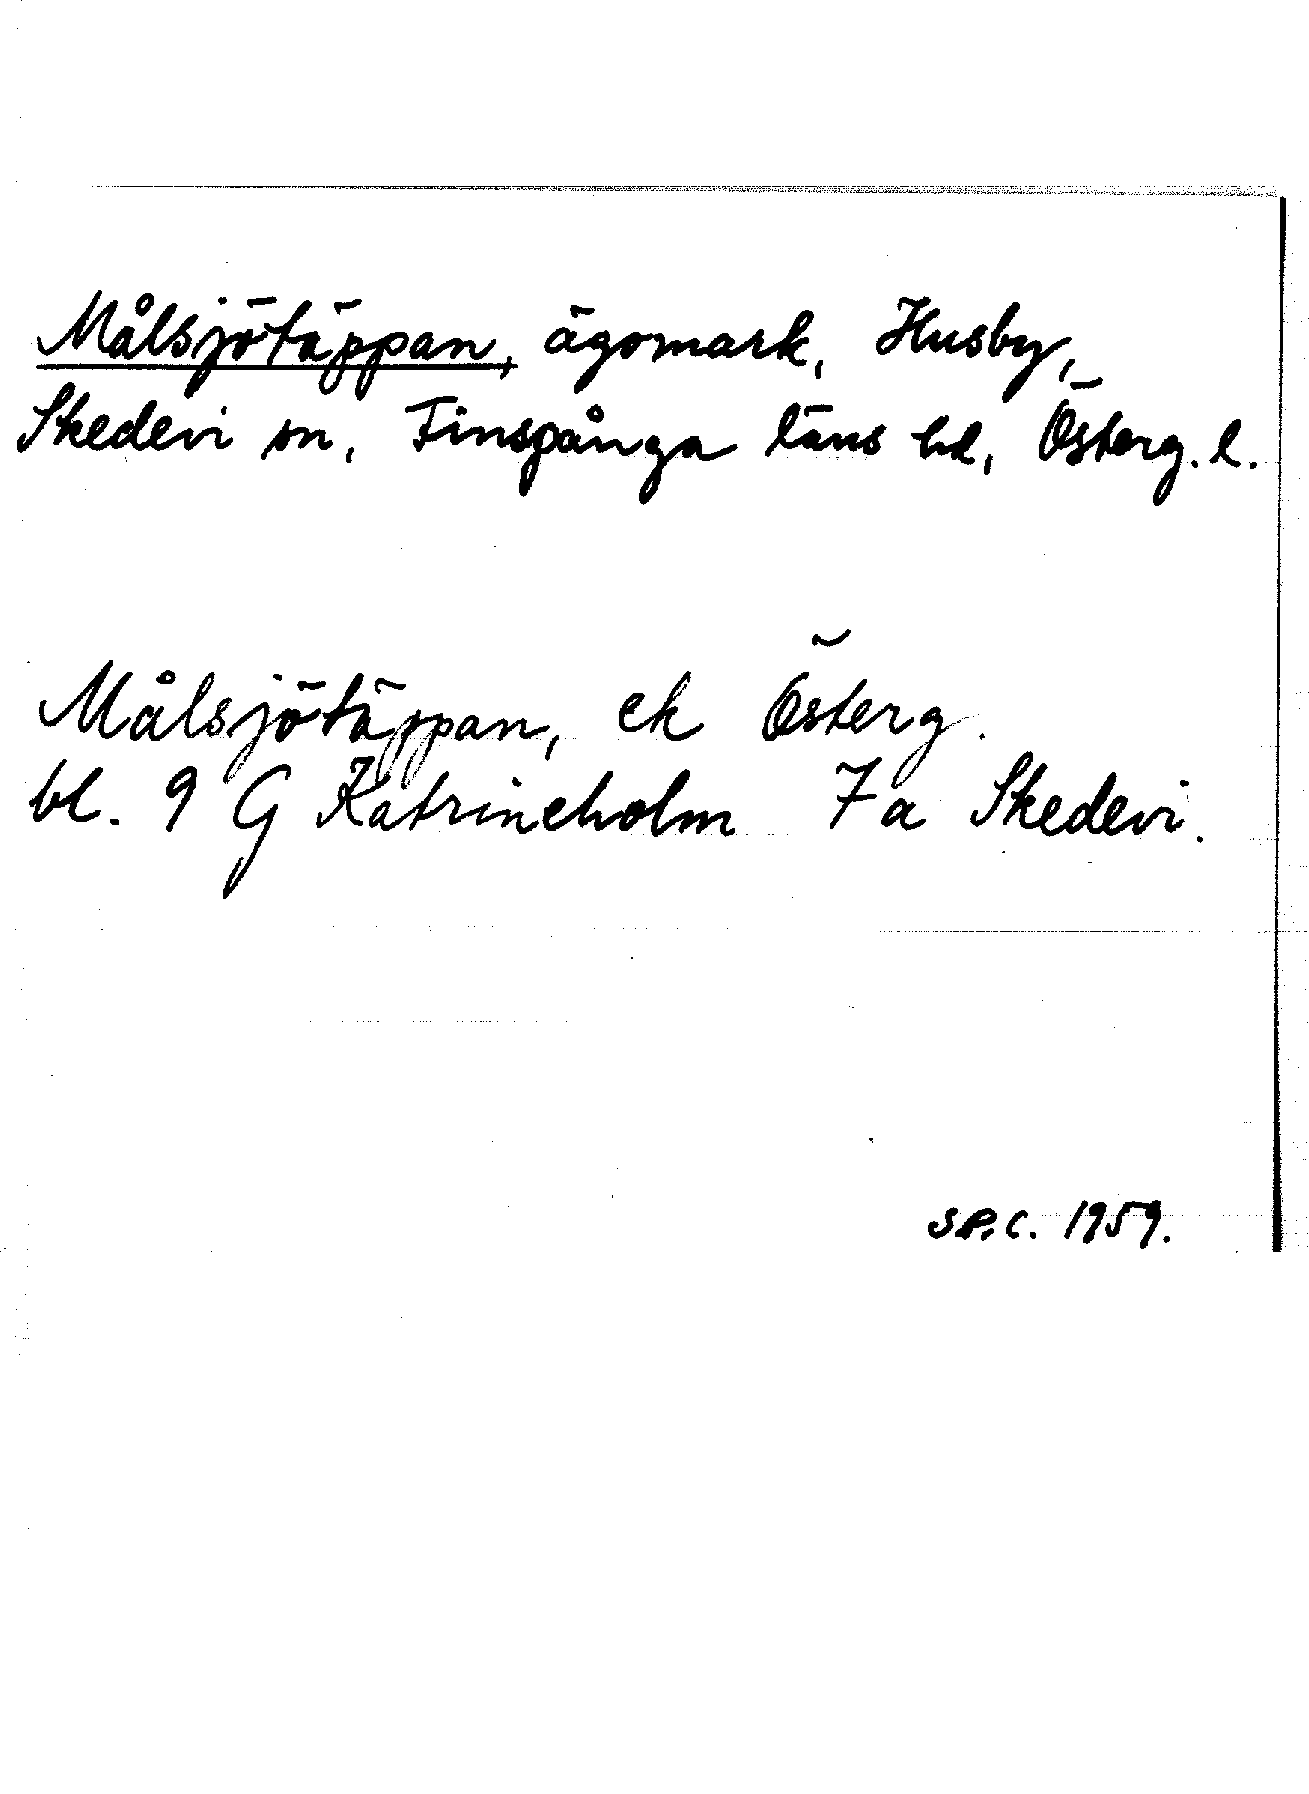 Målsjötäppan, ägomark, Husby,
Skedevi sn, Finspånga läns hd, Österg. l.
Målsjötäppan, ek Österg.
bl. 9 G Katrineholm 7a Skedevi.
SP.C. 1959.